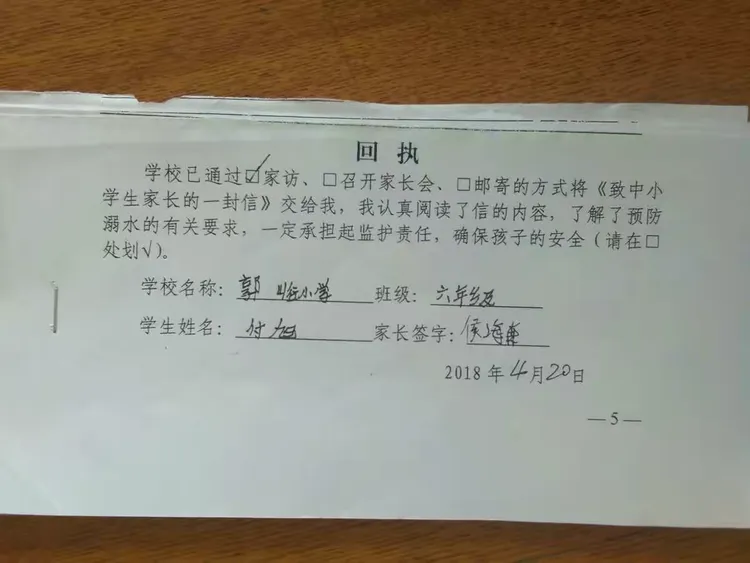 回执
学校已通过☑家访、□召开家长会、□邮寄的方式将《致中小
学生家长的一封信》交给我，我认真阅读了信的内容，了解了预防
溺水的有关要求，一定承担起监护责任，确保孩子的安全（请在□
处划√）。
学校名称：郭 小学 班级：六年级
学生姓名：付 家长签字：侯海
2018 年 4月20日
—5—